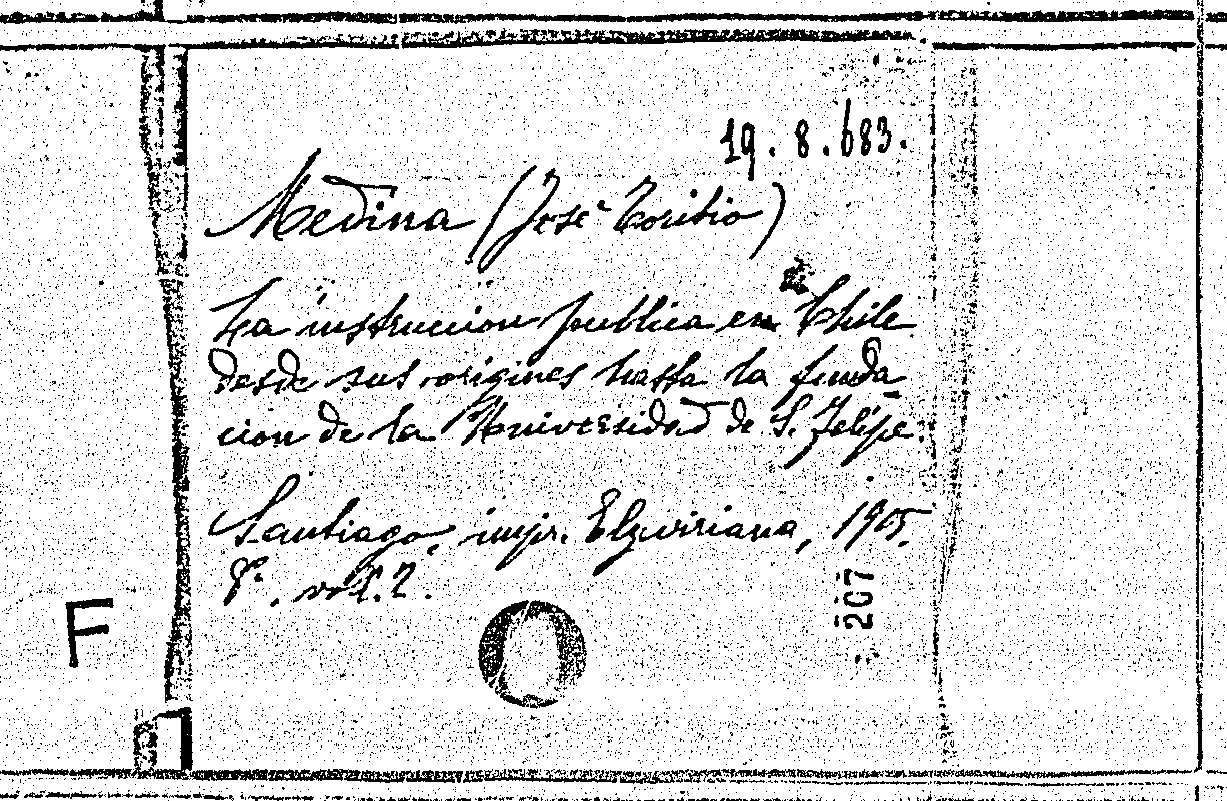 19.8.683.
Medina (José Toribio)
La instruccion publica en Chile
desde sus origines hasta la funda
cion de la Universidad de S. Felipe.
Santiago, impr. Elzviriana, 1905.
8º. vol. 2.
207
F